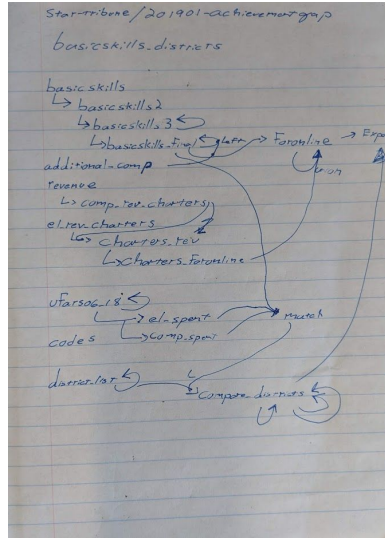 Startribune/201901-achievementgap
basicskills_districts
basicskills
basicskills2
basicskills3
basicskills_final left Foronline Expo
additional_comp
revenue
comp_rev_charters
el_rev_charters
charters_rev
charters_foronline
ufars06_18
el_spent match
codes comp_spent
district_list
compare_districts